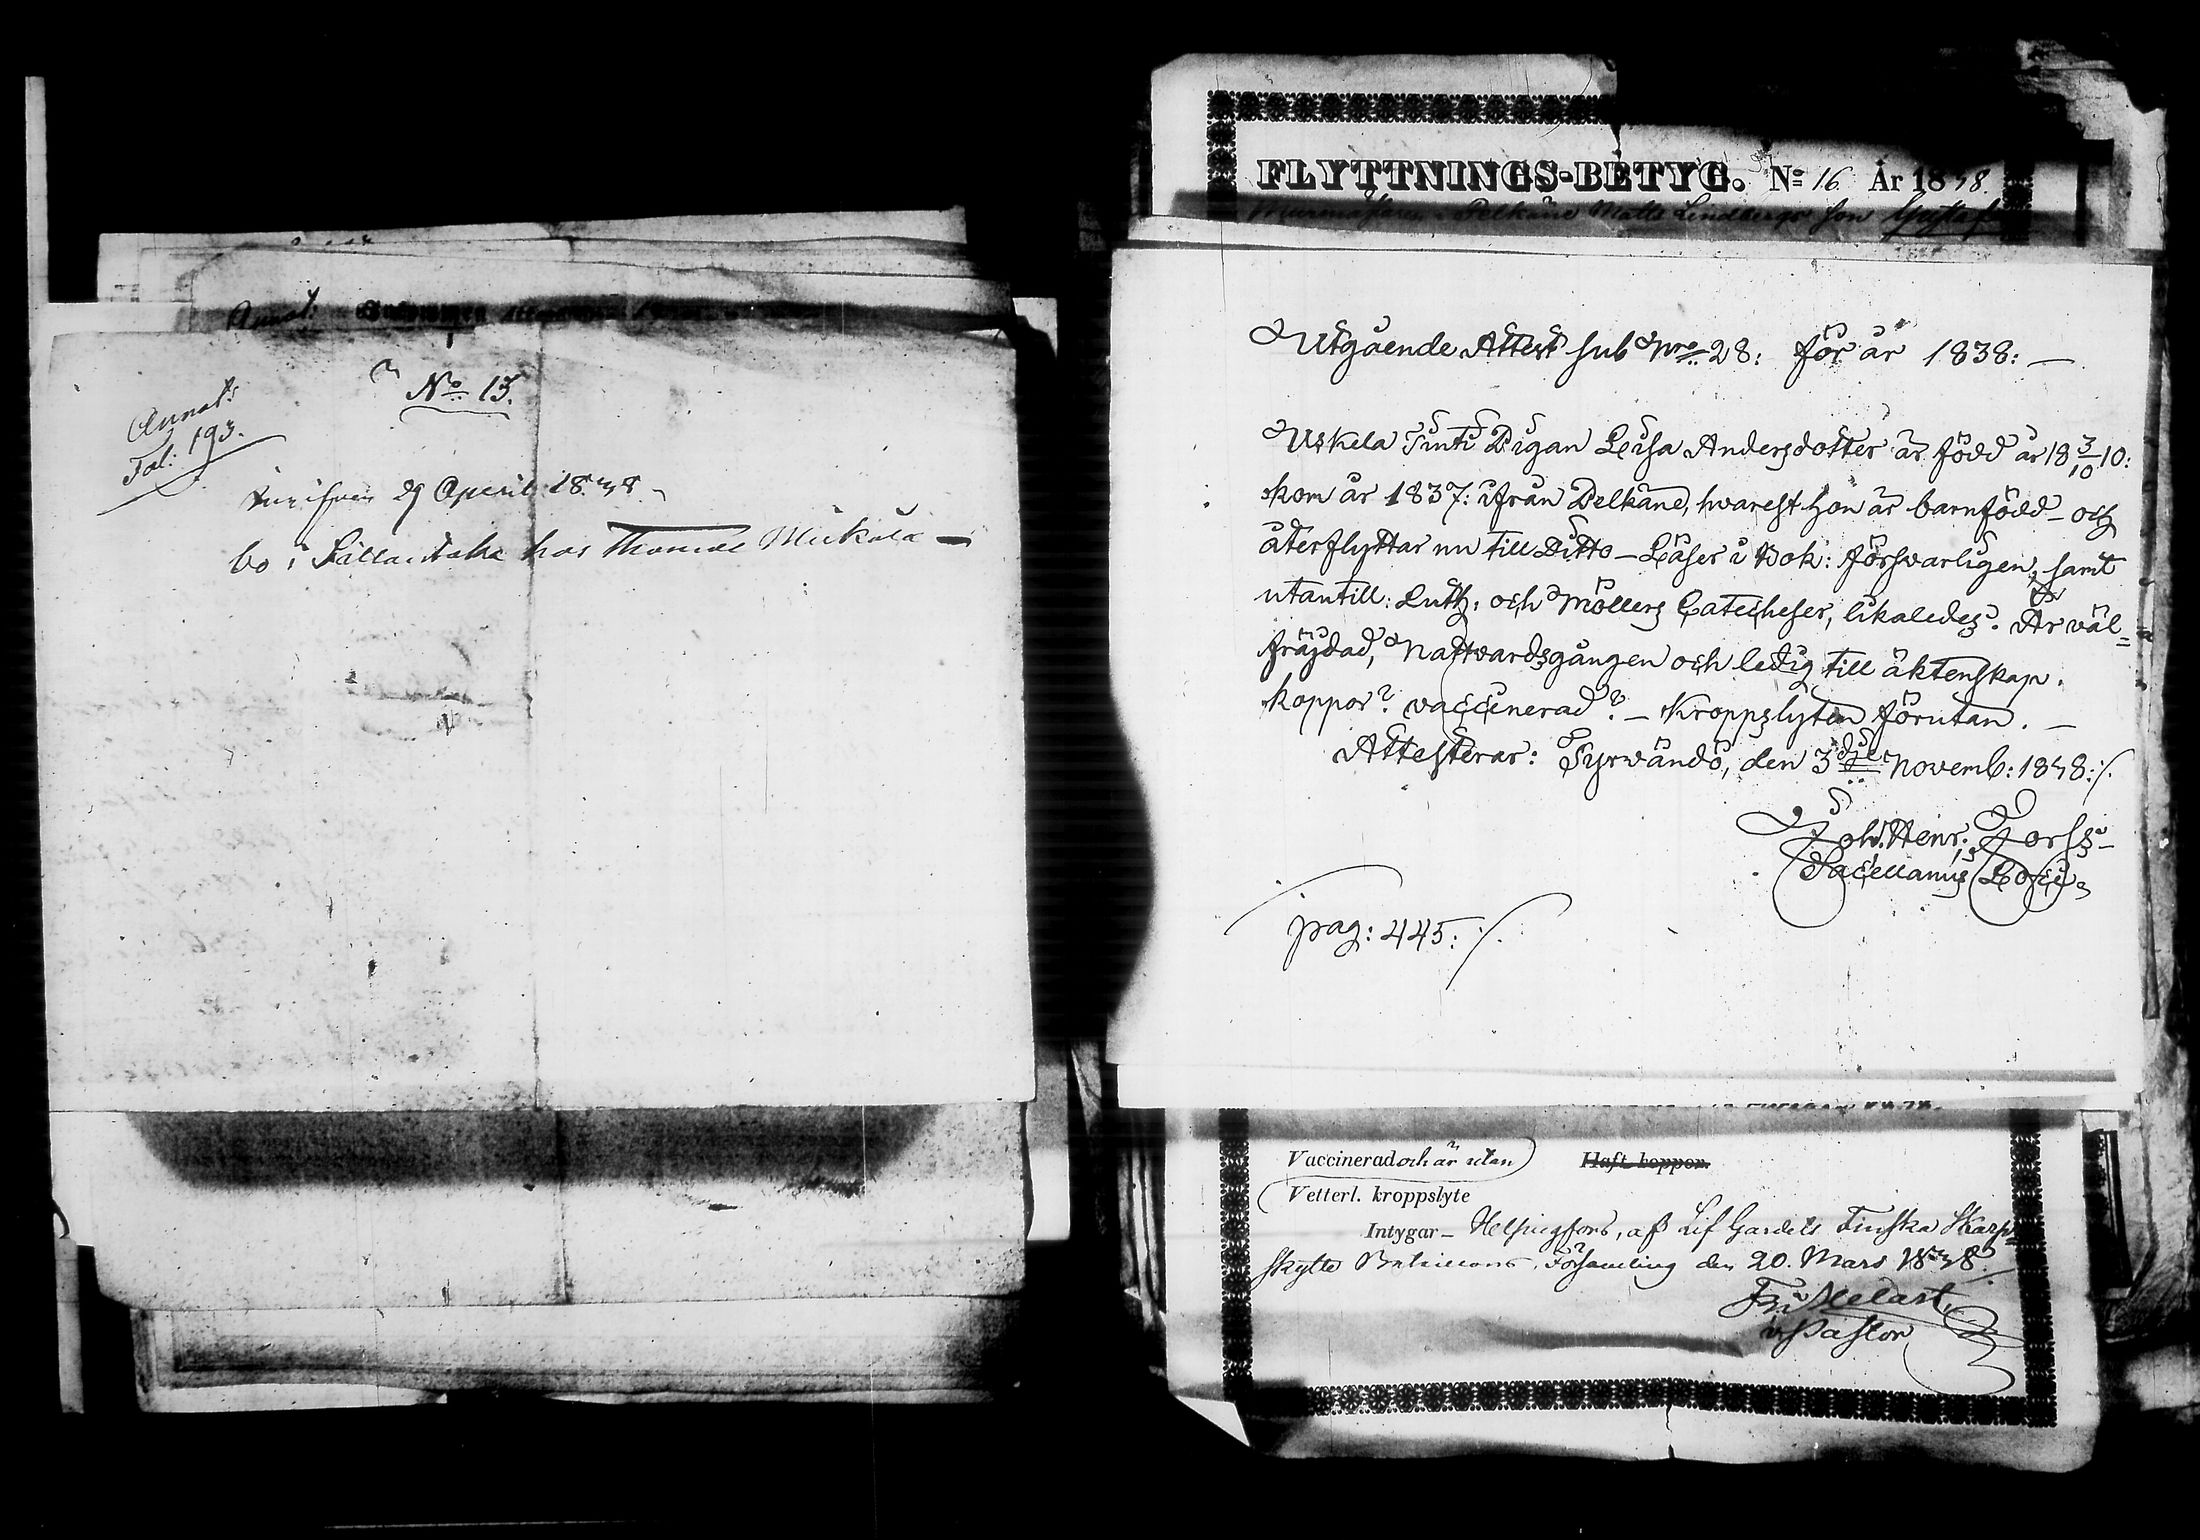 Annot:
No 15.
Annot:
Fol: 193.
29 April 1838
bo i hos Thomas Mickola —
FLYTTNINGS-BETYG. No 16 År 1838.
Pelkäne Matts Lindbergs son Gustaf
Utgående Attest sub Nro 28: för år 1838: —
Uskela Tinti Pigan Leisa Andersdotter är född år 18 3/10 10:
kom år 1837: ifrån Pelkäne, hvarest hon är barnfödd – och
återflyttar nu till Ditto – Läser i Bok: försvarligen, samt
utantill: Luth: och Möllers Catecheser, likaledes. Är väl-
fräjdad, Nattvardsgången och ledig till äktenskap.
koppor? vaccinerad? – Kroppslyten förutan. –
Attesterar: Tyrvändö, den 3dje Novemb: 1838:/.
Joh. Henr. Forss
Sacellanus Loci
pag: 445:/.
Vaccinerad och är utan Haft koppor.
Vetterl. kroppslyte
Intygar – Helsingfors, af Lif Gardets Finska Skarp-
skytte Bataillons Församling den 20. Mars 1838.
Melart,
v. Pastor